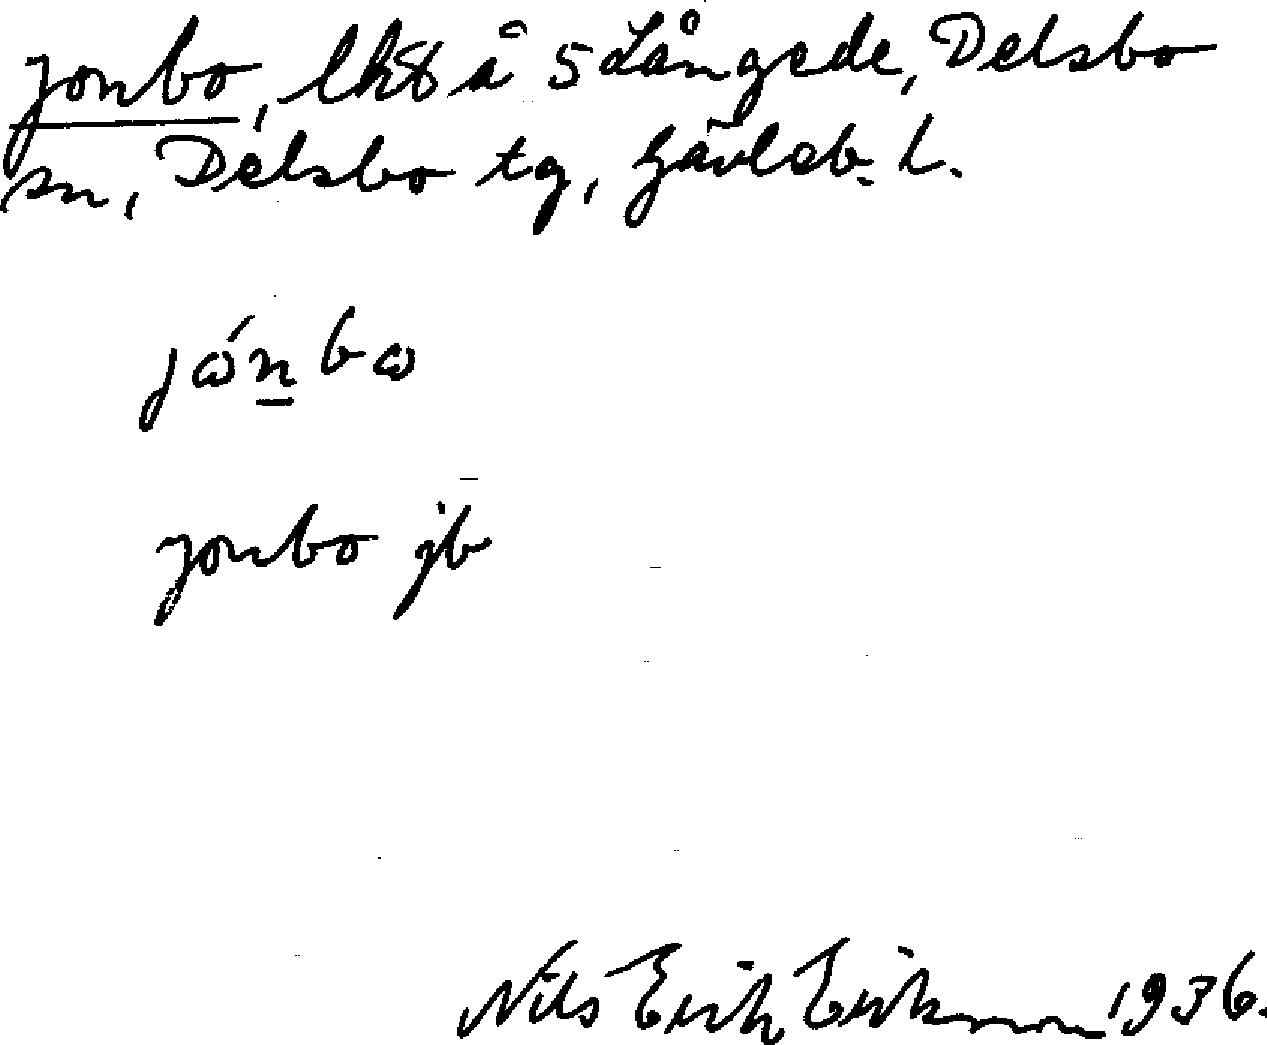 Jonbo, lh8 å 5 Långede, Delsbo
sn, Delsbo tg, Gävleb. l.
jɷ́n̲bɷ
Jonbo jb
Nils Erik Eriksson 1936.